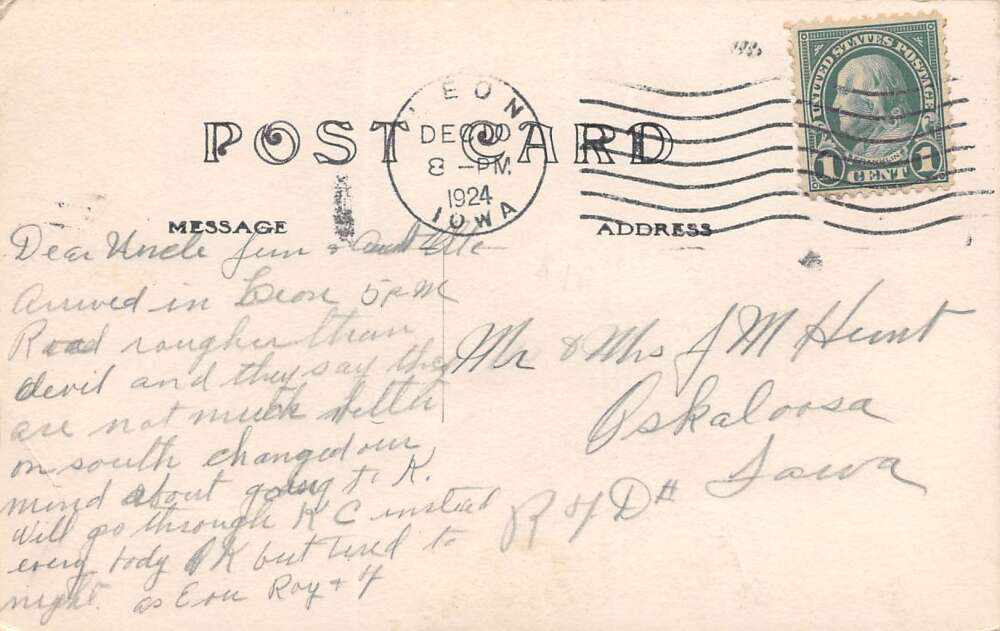 POST CARD
LEON
DEC
8 - PM.
1924
IOWA
UNITED STATES POSTAGE
1 CENT 1
MESSAGE
ADDRESS
Dear Uncle Jim &
Arrived in Leon 5 P M
Road rougher than
devil and they say they
are not much better
on south changed our
mind about going to K.
Will go through K C instead
every body OK but tired to
night. as Ever Roy + 4
Mr & Mrs J M Hunt
Oskaloosa
Iowa
R 4 D #